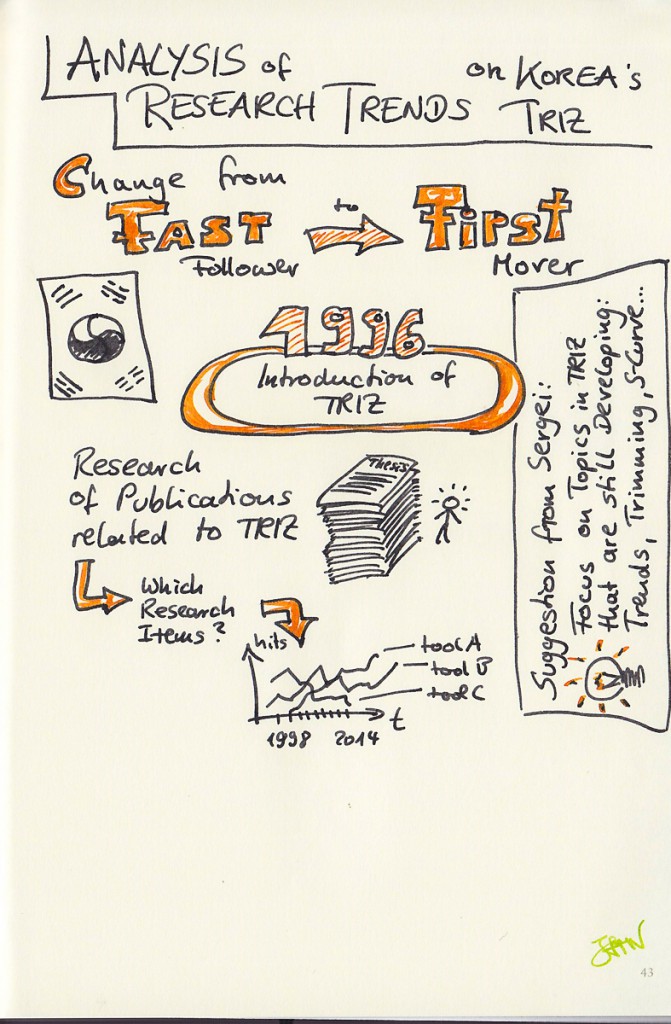 ANALYSIS of
RESEARCH TRENDS on KOREA's
TRIZ
Change from
FAST to First
Follower Mover
1996
Introduction of
TRIZ
Research
of Publications
related to TRIZ
Thesis
Which
Research
Items?
hits
tool A
tool B
tool C
t
1998 2014
Suggestion from Sergei:
Focus on Topics in TRIZ
that are still Developing:
Trends, Trimming, S-Curve...
43